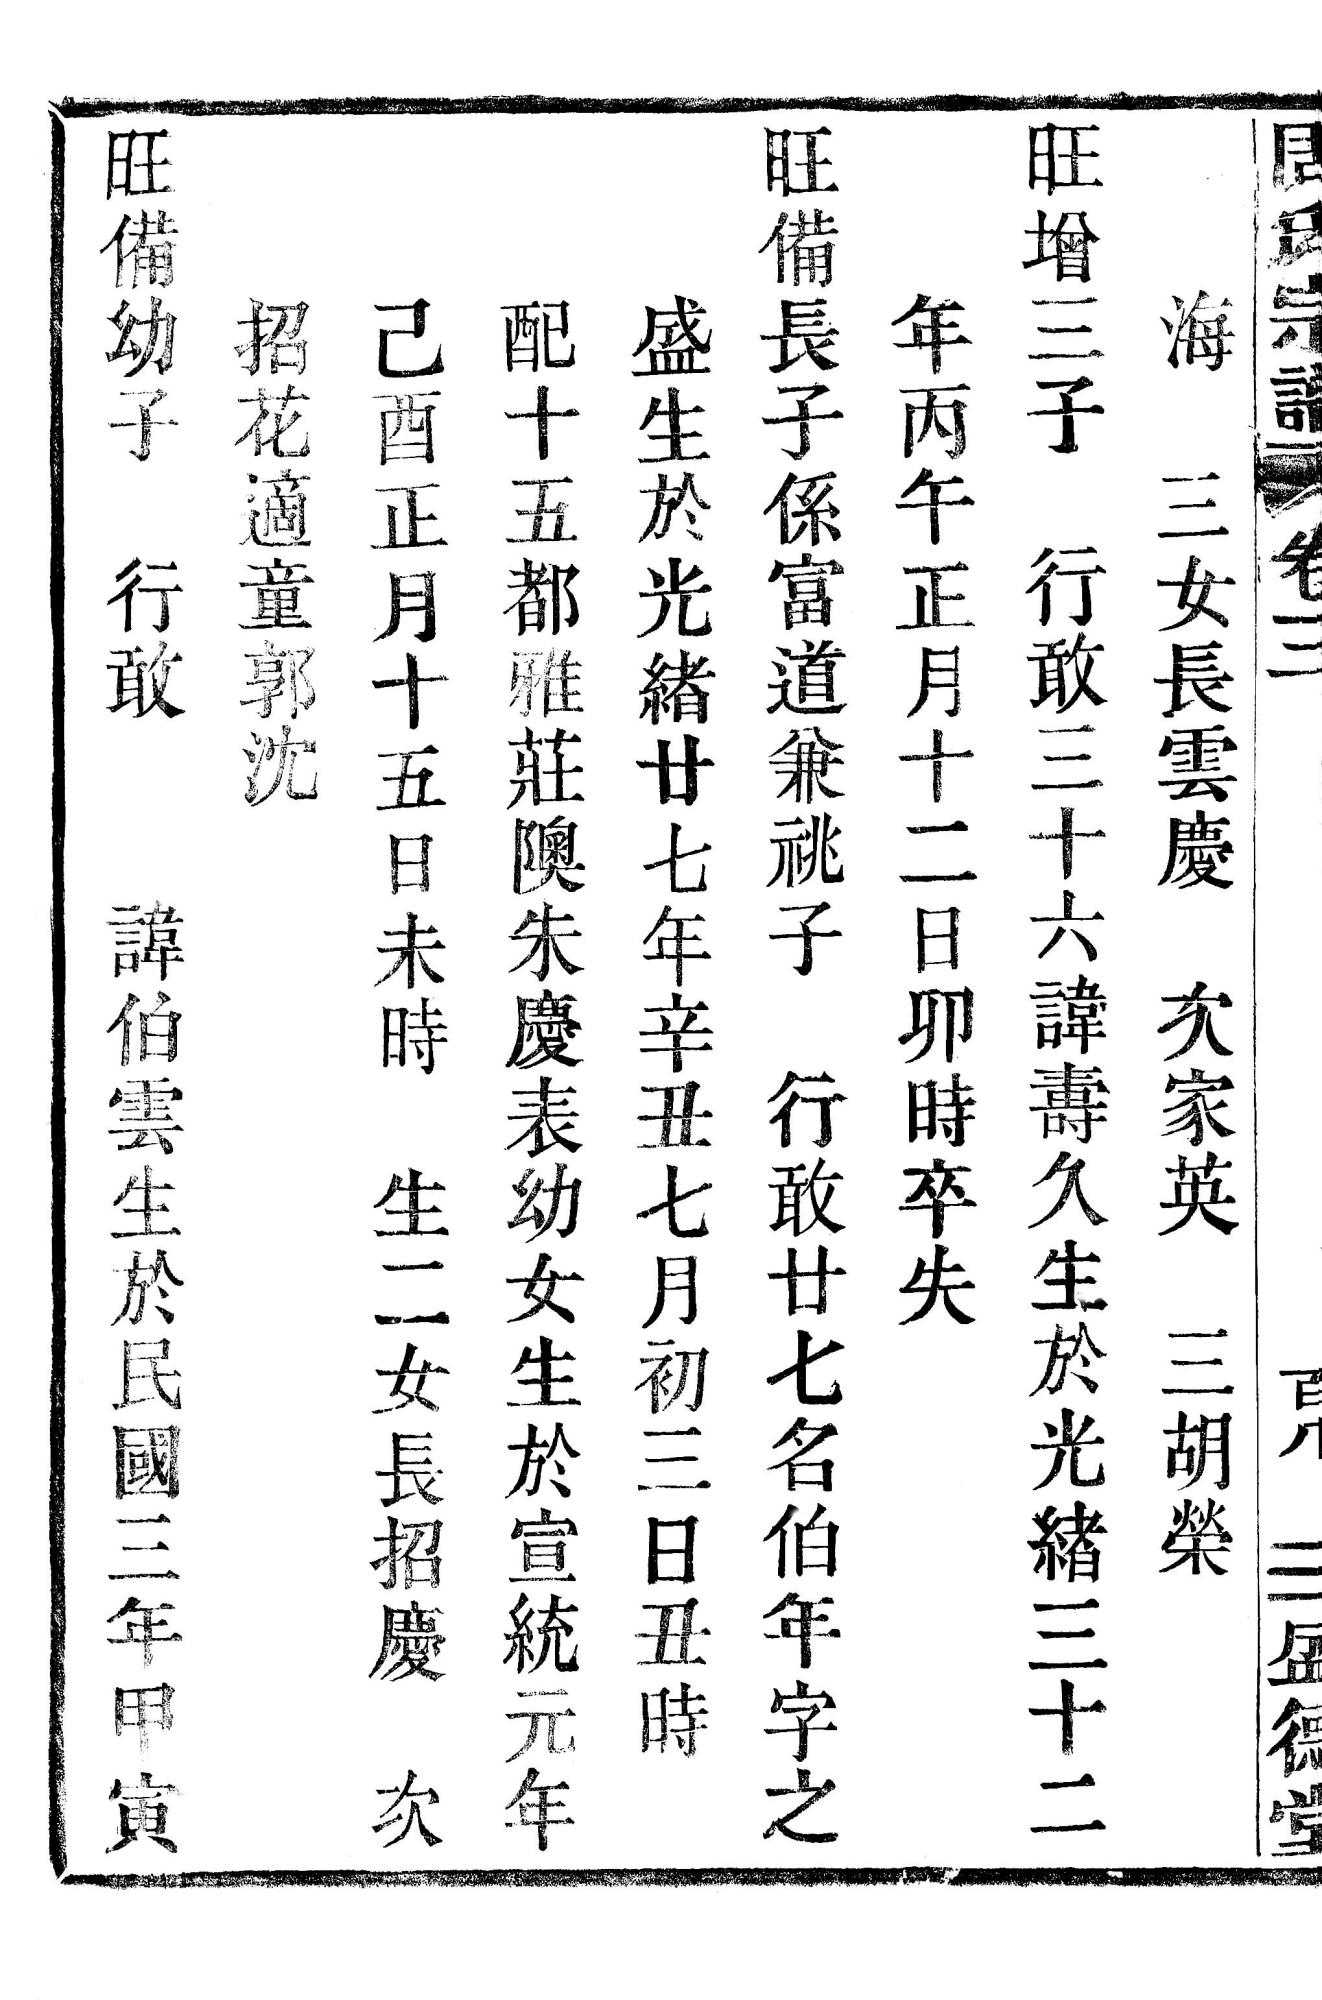 氏宗譜 卷三 三盛德堂
海 三女長雲慶 次家英 三胡榮
旺增三子 行敢三十六諱壽久生於光緒三十二
年丙午正月十二日卯時卒失
旺備長子係富道兼祧子 行敢廿七名伯年字之
盛生於光緒廿七年辛丑七月初三日丑時
配十五都雅莊隩朱慶表幼女生於宣統元年
己酉正月十五日未時 生二女長招慶 次
招花適童郭沈
旺備幼子 行敢 諱伯雲生於民國三年甲寅